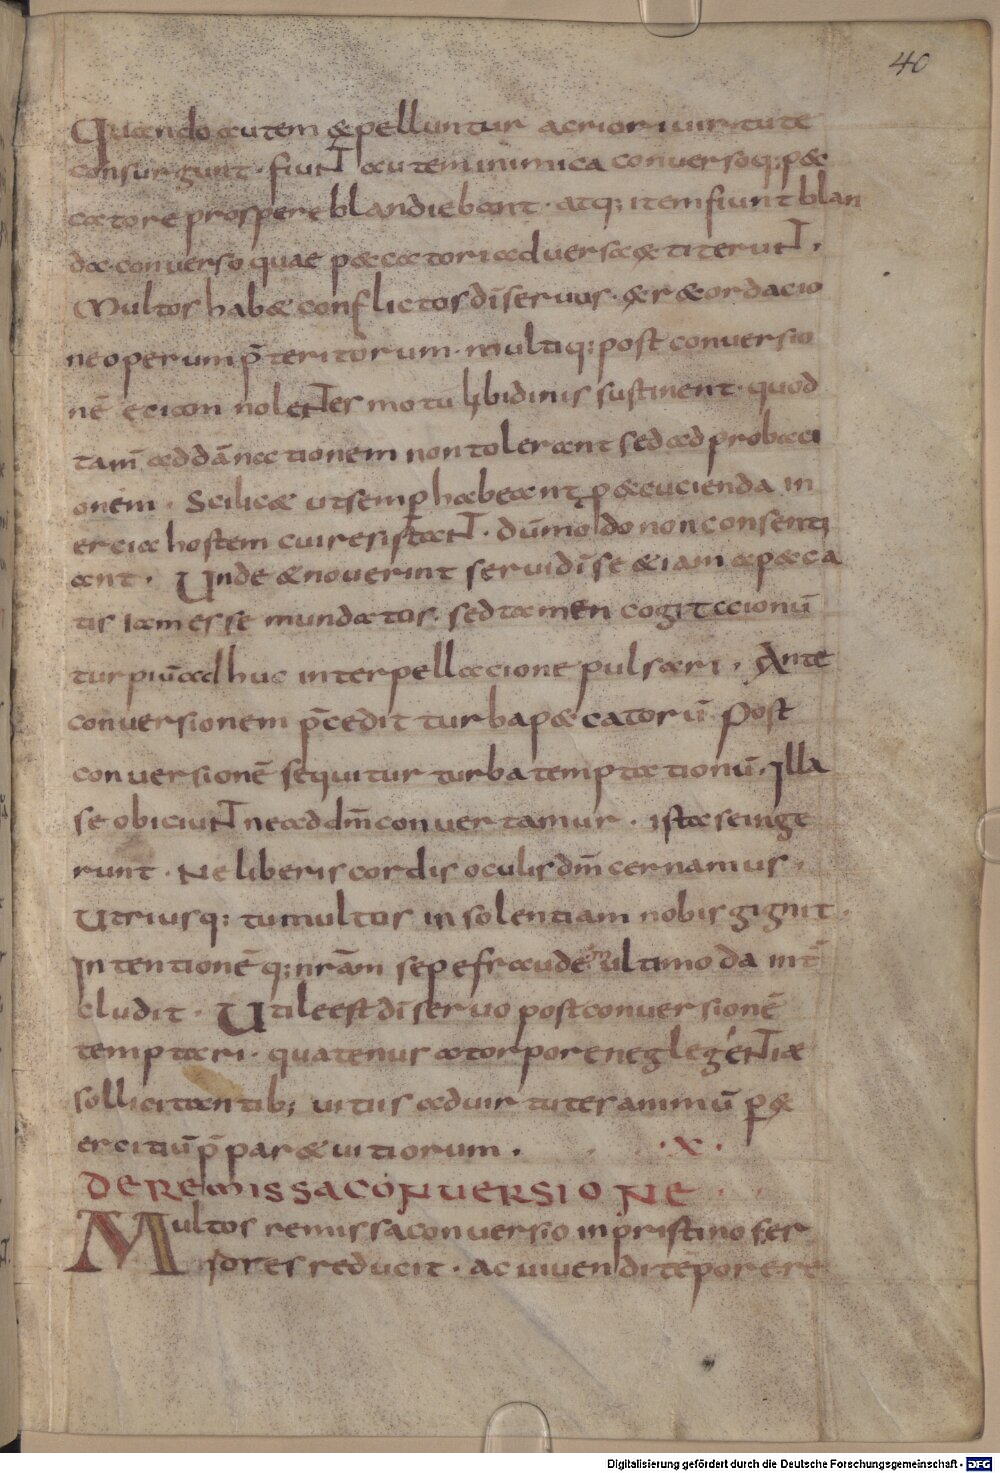 40
Quando autem expelluntur acriori uirtute
consurgunt · fiunt autem inimica conuersoq; pec
catore prospere blandiebant · atq; item fiunt blan
da conuerso quae peccatori aduersa extiterunt ·
Multos habet conflictos dī seruus · ex recordacio
ne operum p̄teritorum · multiq; post conuersio
nē eciam nolentes motu libidinis sustinent · quod
tam̄ ad dānationem non tolerant sed ad probaci
onem · Scilicet ut semp habeant p excucienda in
ercia hostem cui resistant · dūmodo non consenti
ant · Unde & nouerint serui dī se etiam a pecca
tis iam esse mundatos · sed tamen cogitacionū
turpiū adhuc interpellacione pulsari · Ante
conuersionem p̄cedit turba peccatorū · Post
conuersionē sequitur turba temptationū · Illa
se obiciunt ne ad dm̄ conuertamur · ista se inge
runt · Ne liberis cordis oculis dm̄ cernamus ·
Utriusq; tumultus insolentiam nobis gignit ·
Intentionēq; nrām sepe fraude multimoda int
cludit · Utile est dī seruo post conuersionē
temptari · quatenus a torpore neglegentiae
sollicitantib; uitiis ad uirtutes animū p ex
ercitiū p̄paret uitiorum · · x ·
DE REMISSA CONUERSIONE
Multos remissa conuersio in pristinos er
rores reducit · ac uiuendi tepore re
Digitalisierung gefördert durch die Deutsche Forschungsgemeinschaft - DFG